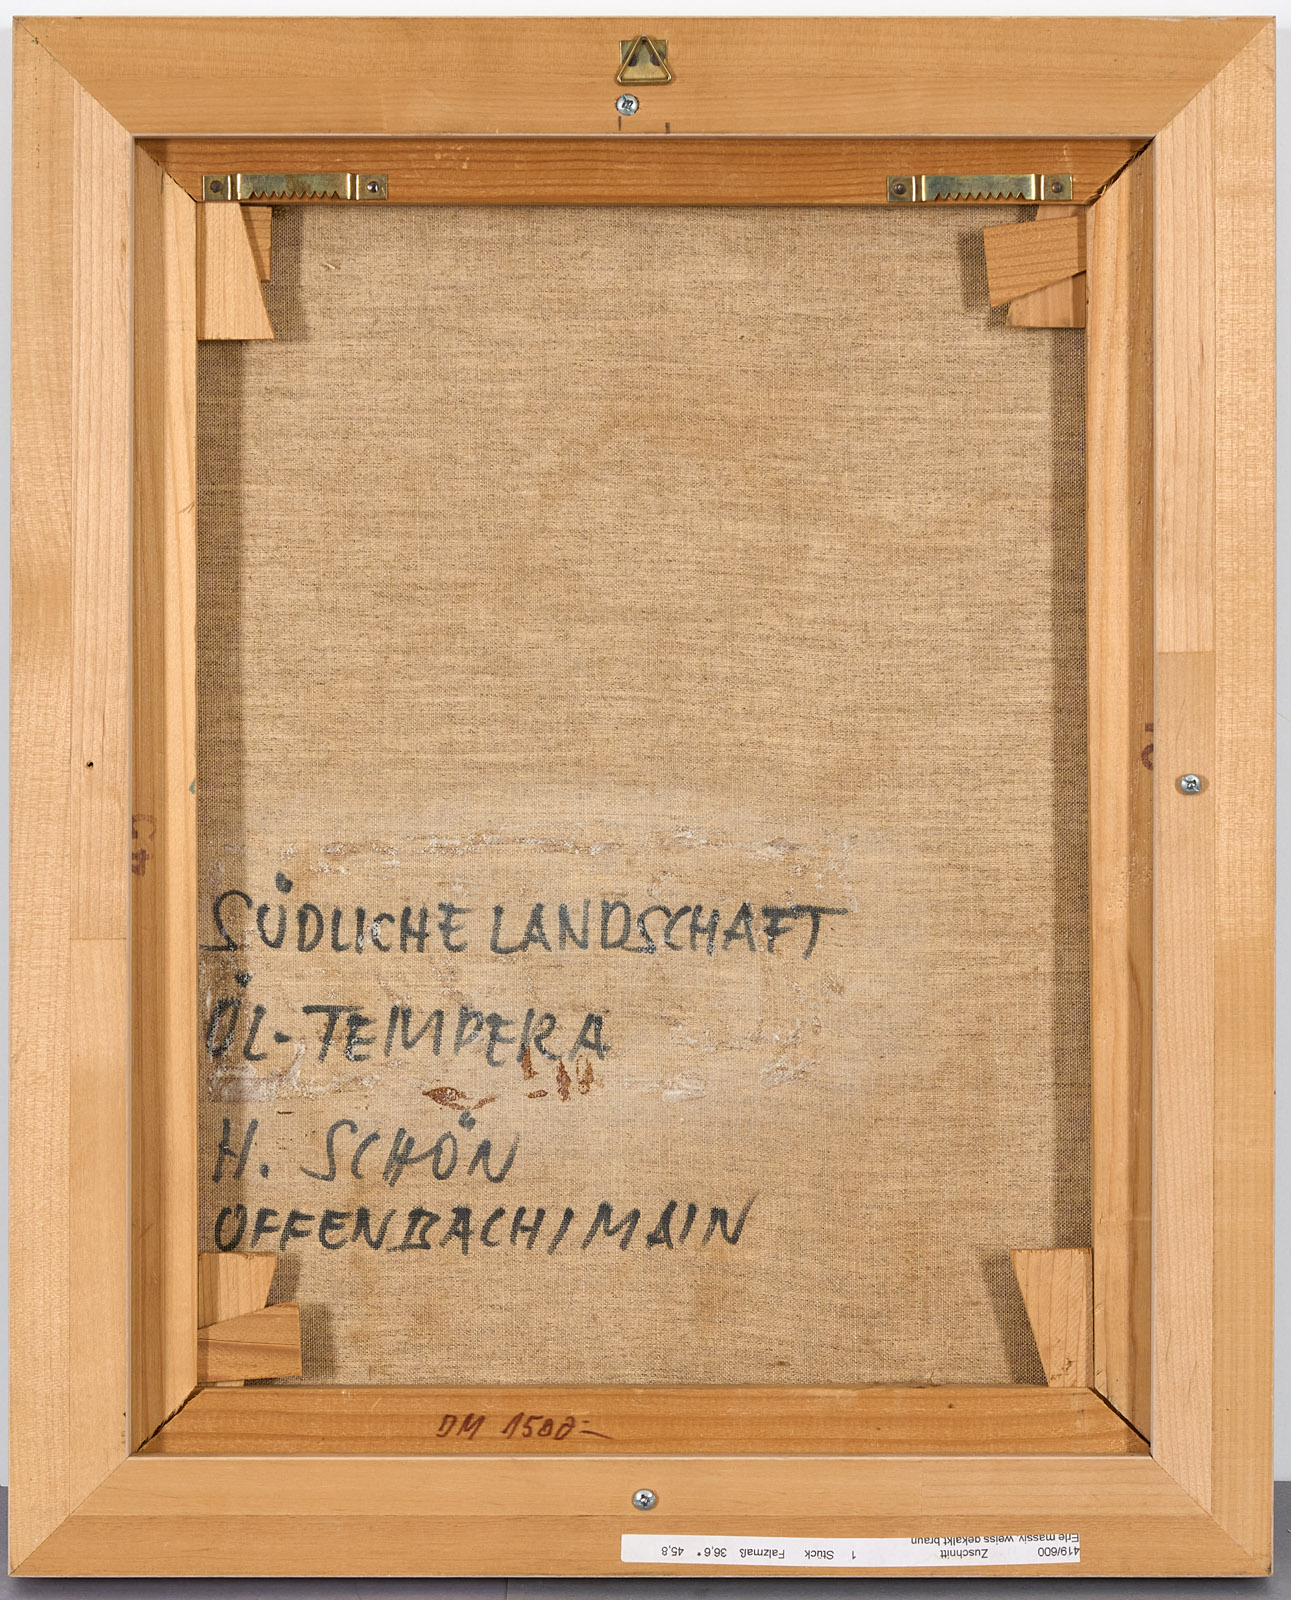 SÜDLICHE LANDSCHAFT
ÖL-TEMPERA
H. SCHÖN
OFFENBACH/MAIN
DM 1500=
419/600 Zuschnitt 1 Stück Falzmaß 36,6 * 45,8
Erle massiv, weiss gekalkt braun